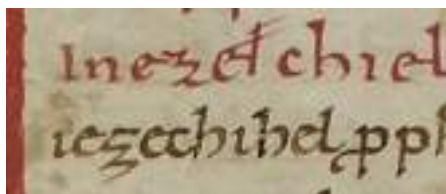 In ezet chiel
iezechihel pph